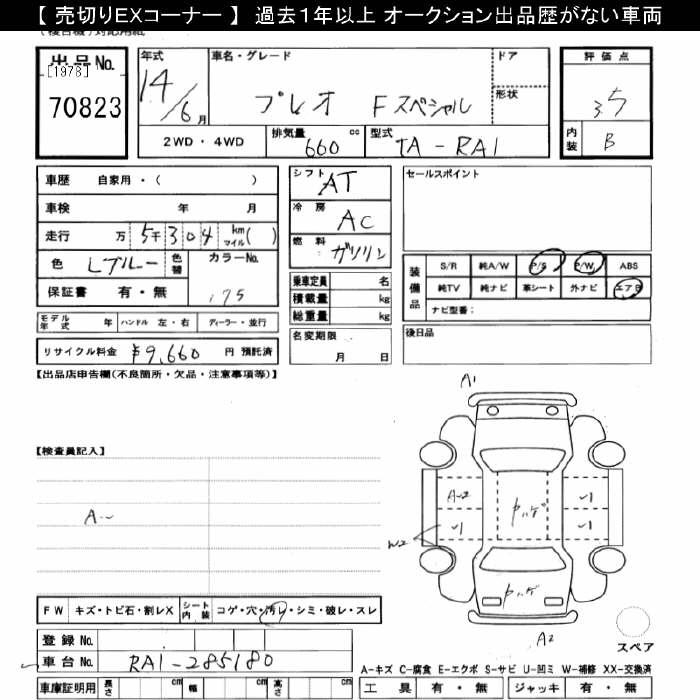 【 売切りEXコーナー 】 過去1年以上 オークション出品歴がない車両
(複合機)対応用紙
出品No.
[1978]
70823
年式
14/6月
車名・グレード
プレオ Fスペシャル
ドア
形状
評価点
3.5
内装
B
2WD・4WD
排気量
660 cc
型式
TA-RA1
車歴 自家用・( )
車検 年 月
走行 万 5千304 km マイル( )
色 Lブルー 色替 カラーNo.
175
保証書 有・無
シフト
AT
冷房
AC
燃料
ガソリン
乗車定員 名
積載量 kg
総重量 kg
セールスポイント
装備品
S/R 純A/W P/S P/W ABS
純TV 純ナビ 革シート 外ナビ エアB
ナビ型番:
モデル年式 年 ハンドル 左・右 ディーラー・並行
名変期限
月 日
後日品
リサイクル料金 ¥9,660 円 預託済
【出品店申告欄(不良箇所・欠品・注意事項等)】
A1
【検査員記入】
A-2
ヤハゲ
W2
ヤハゲ
A2
FW キズ・トビ石・割レX シート内装 コゲ・穴・汚レ・シミ・破レ・スレ
スペア
登録No.
車台No. RA1-285180
A-キズ C-腐食 E-エクボ S-サビ U-凹ミ W-補修 XX-交換済
車庫証明用 長さ cm 幅 cm 高さ cm
工具 有・無 ジャッキ 有・無